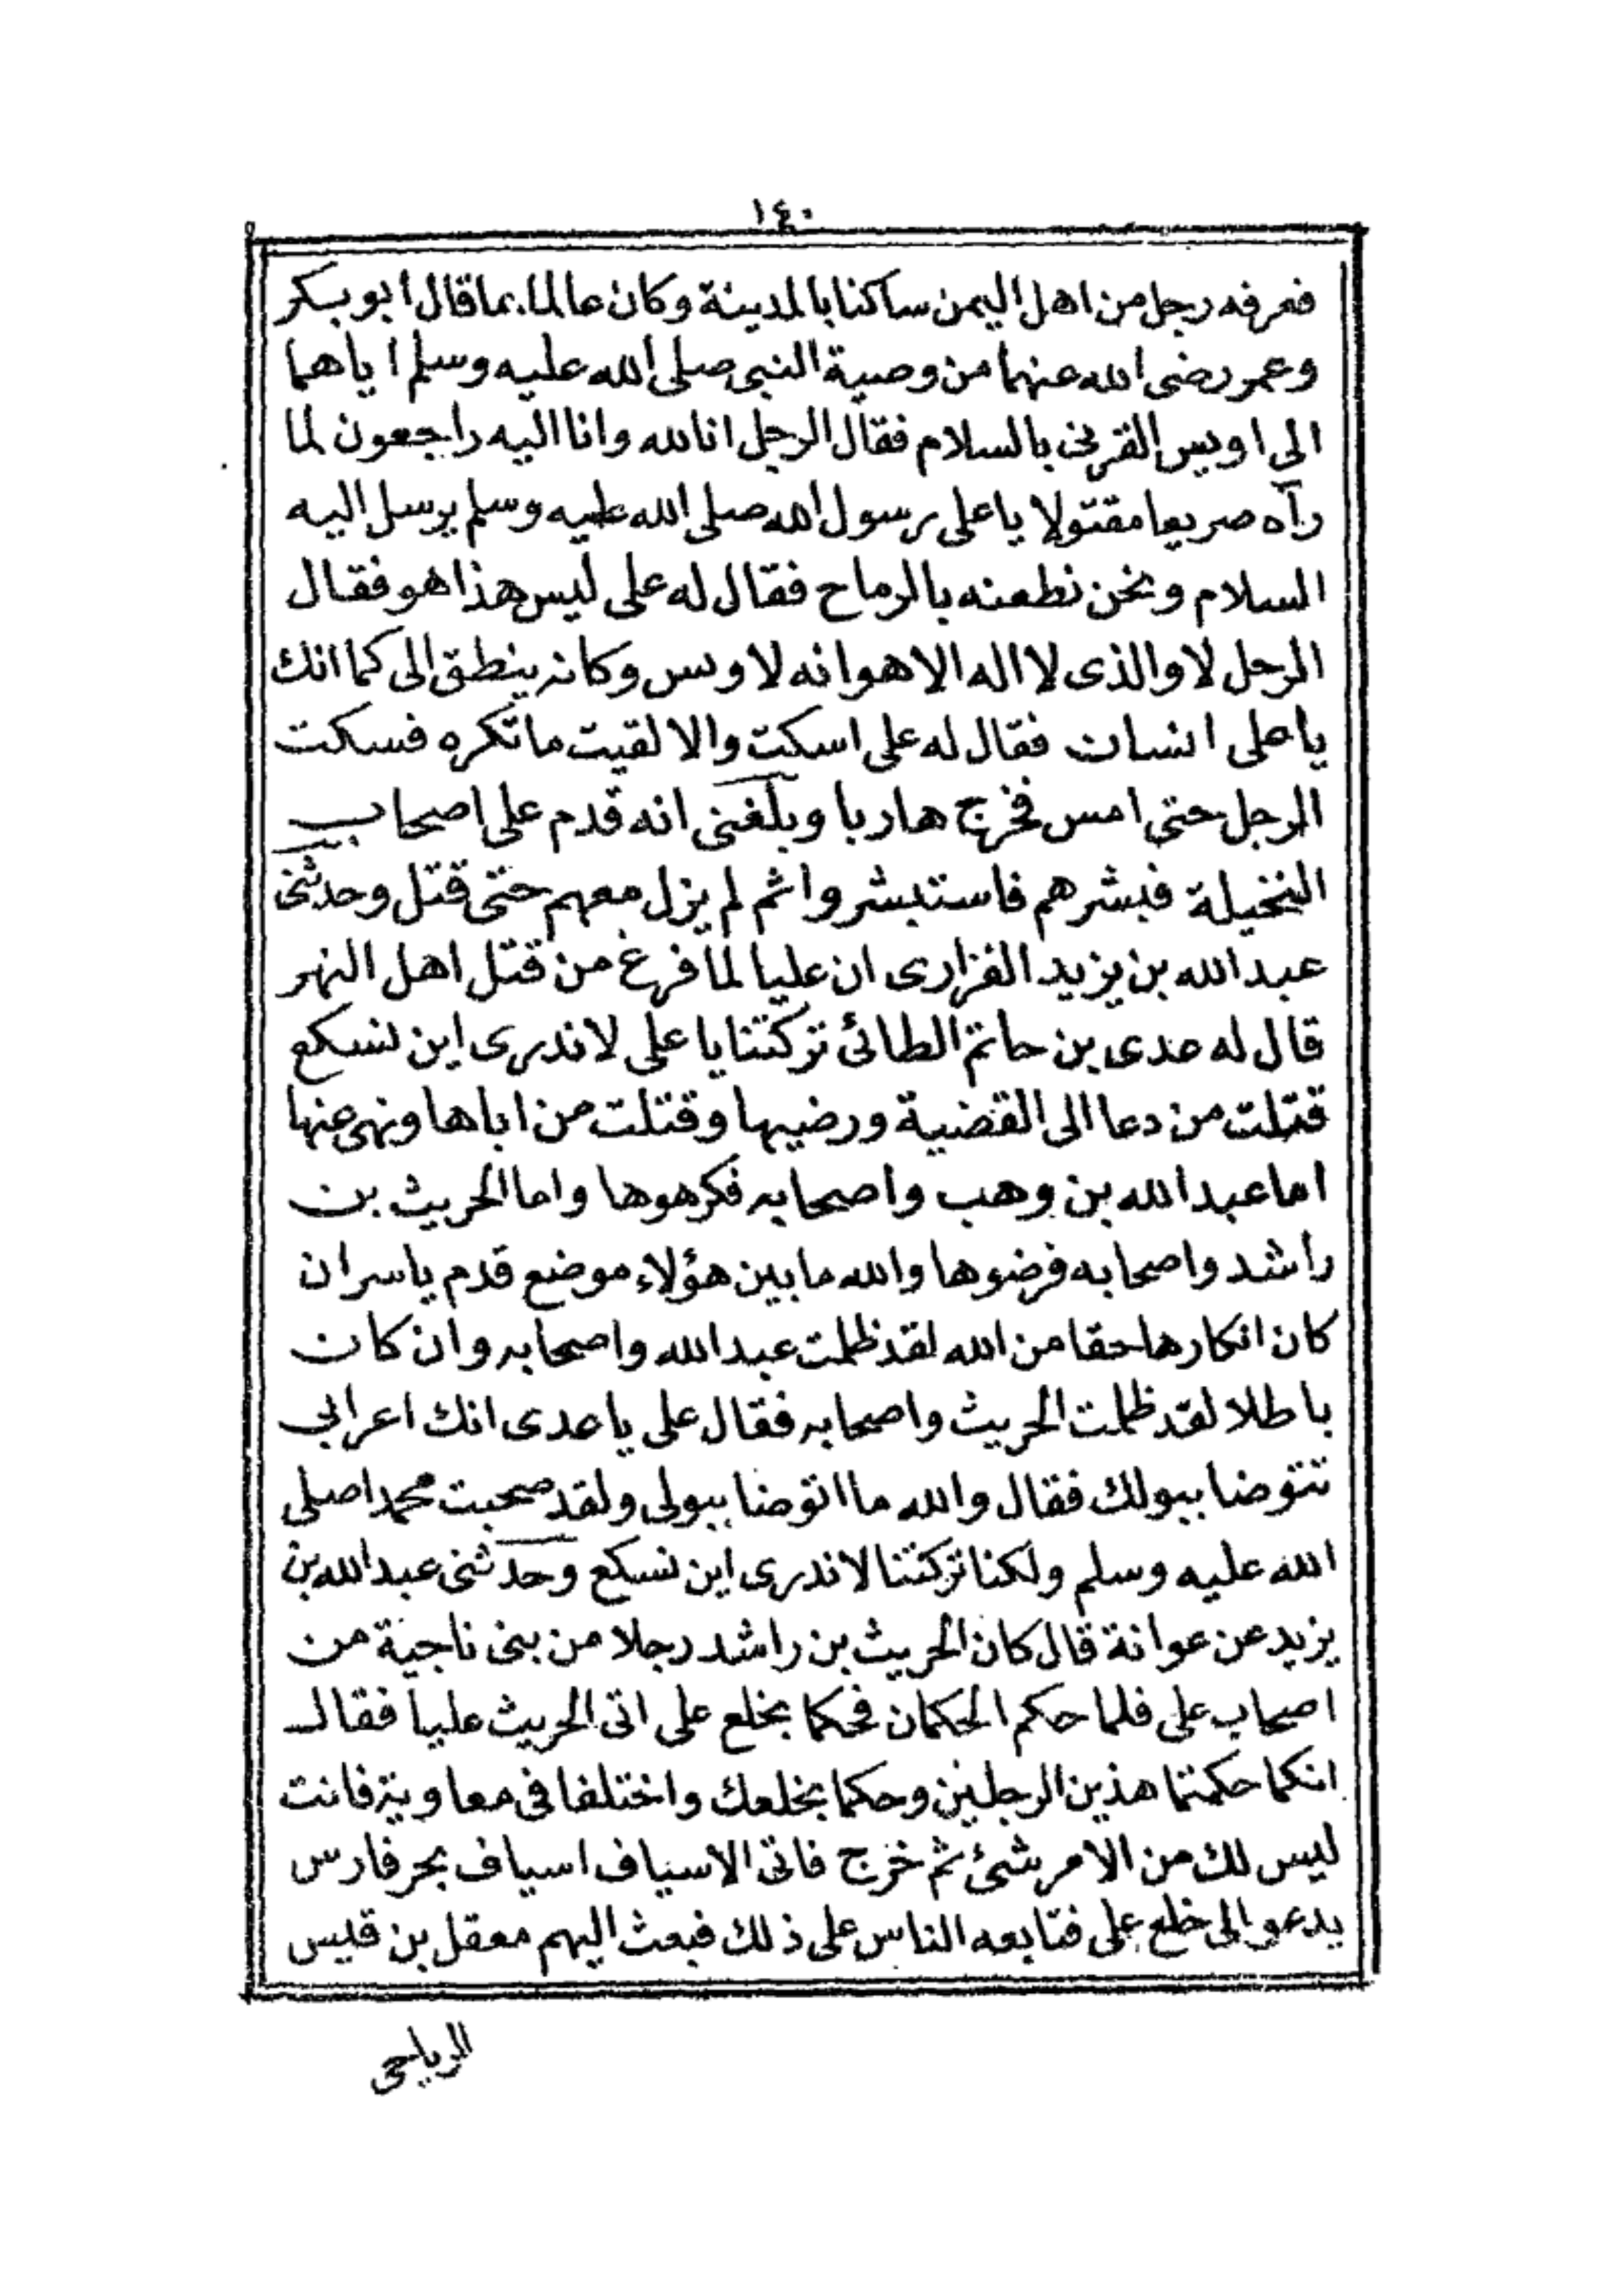 ١٤٠
فعرفه رجل من اهل اليمن ساكنا بالمدينة وكان عالما بما قال ابو بكر
وعمر رضى الله عنهما من وصية النبى صلى الله عليه وسلم اياهما
الى اويس القرنى بالسلام فقال الرجل انا لله وانا اليه راجعون لما
رآه صريعا مقتولا يا على رسول الله صلى الله عليه وسلم يرسل اليه
السلام ونحن نطعنه بالرماح فقال له على ليس هذا هو فقال
الرجل لا والذى لا اله الا هو انه لاويس وكانه ينطق الى كما انك
يا على انسان فقال له على اسكت والا لقيت ما تكره فسكت
الرجل حتى امس فخرج هاربا وبلغنى انه قدم على اصحاب
النخيلة فبشرهم فاستبشروا ثم لم يزل معهم حتى قتل وحدثنى
عبد الله بن يزيد الفزارى ان عليا لما فرغ من قتل اهل النهر
قال له عدى بن حاتم الطائى تركتنا يا على لا ندرى اين نسكع
قتلت من دعا الى القضية ورضيها وقتلت من اباها ونهى عنها
اما عبد الله بن وهب واصحابه فكرهوها واما الحريث بن
راشد واصحابه فرضوها والله ما بين هؤلاء موضع قدم ياسر ان
كان انكارها حقا من الله لقد ظلمت عبد الله واصحابه وان كان
باطلا لقد ظلمت الحريث واصحابه فقال على يا عدى انك اعرابي
تتوضا ببولك فقال والله ما اتوضا ببولى ولقد صحبت محمدا صلى
الله عليه وسلم ولكنا تركتنا لا ندرى اين نسكع وحدثنى عبد الله بن
يزيد عن عوانة قال كان الحريث بن راشد رجلا من بنى ناجية من
اصحاب على فلما حكم الحكمان فحكما بخلع على اتى الحريث عليا فقال
انكما حكمتما هذين الرجلين وحكما بخلعك واختلفا فى معاوية فانت
ليس لك من الامر شئ ثم خرج فاتى الاسياف اسياف بحر فارس
يدعو الى خلع على فتابعه الناس على ذلك فبعث اليهم معقل بن قيس
الرياحى